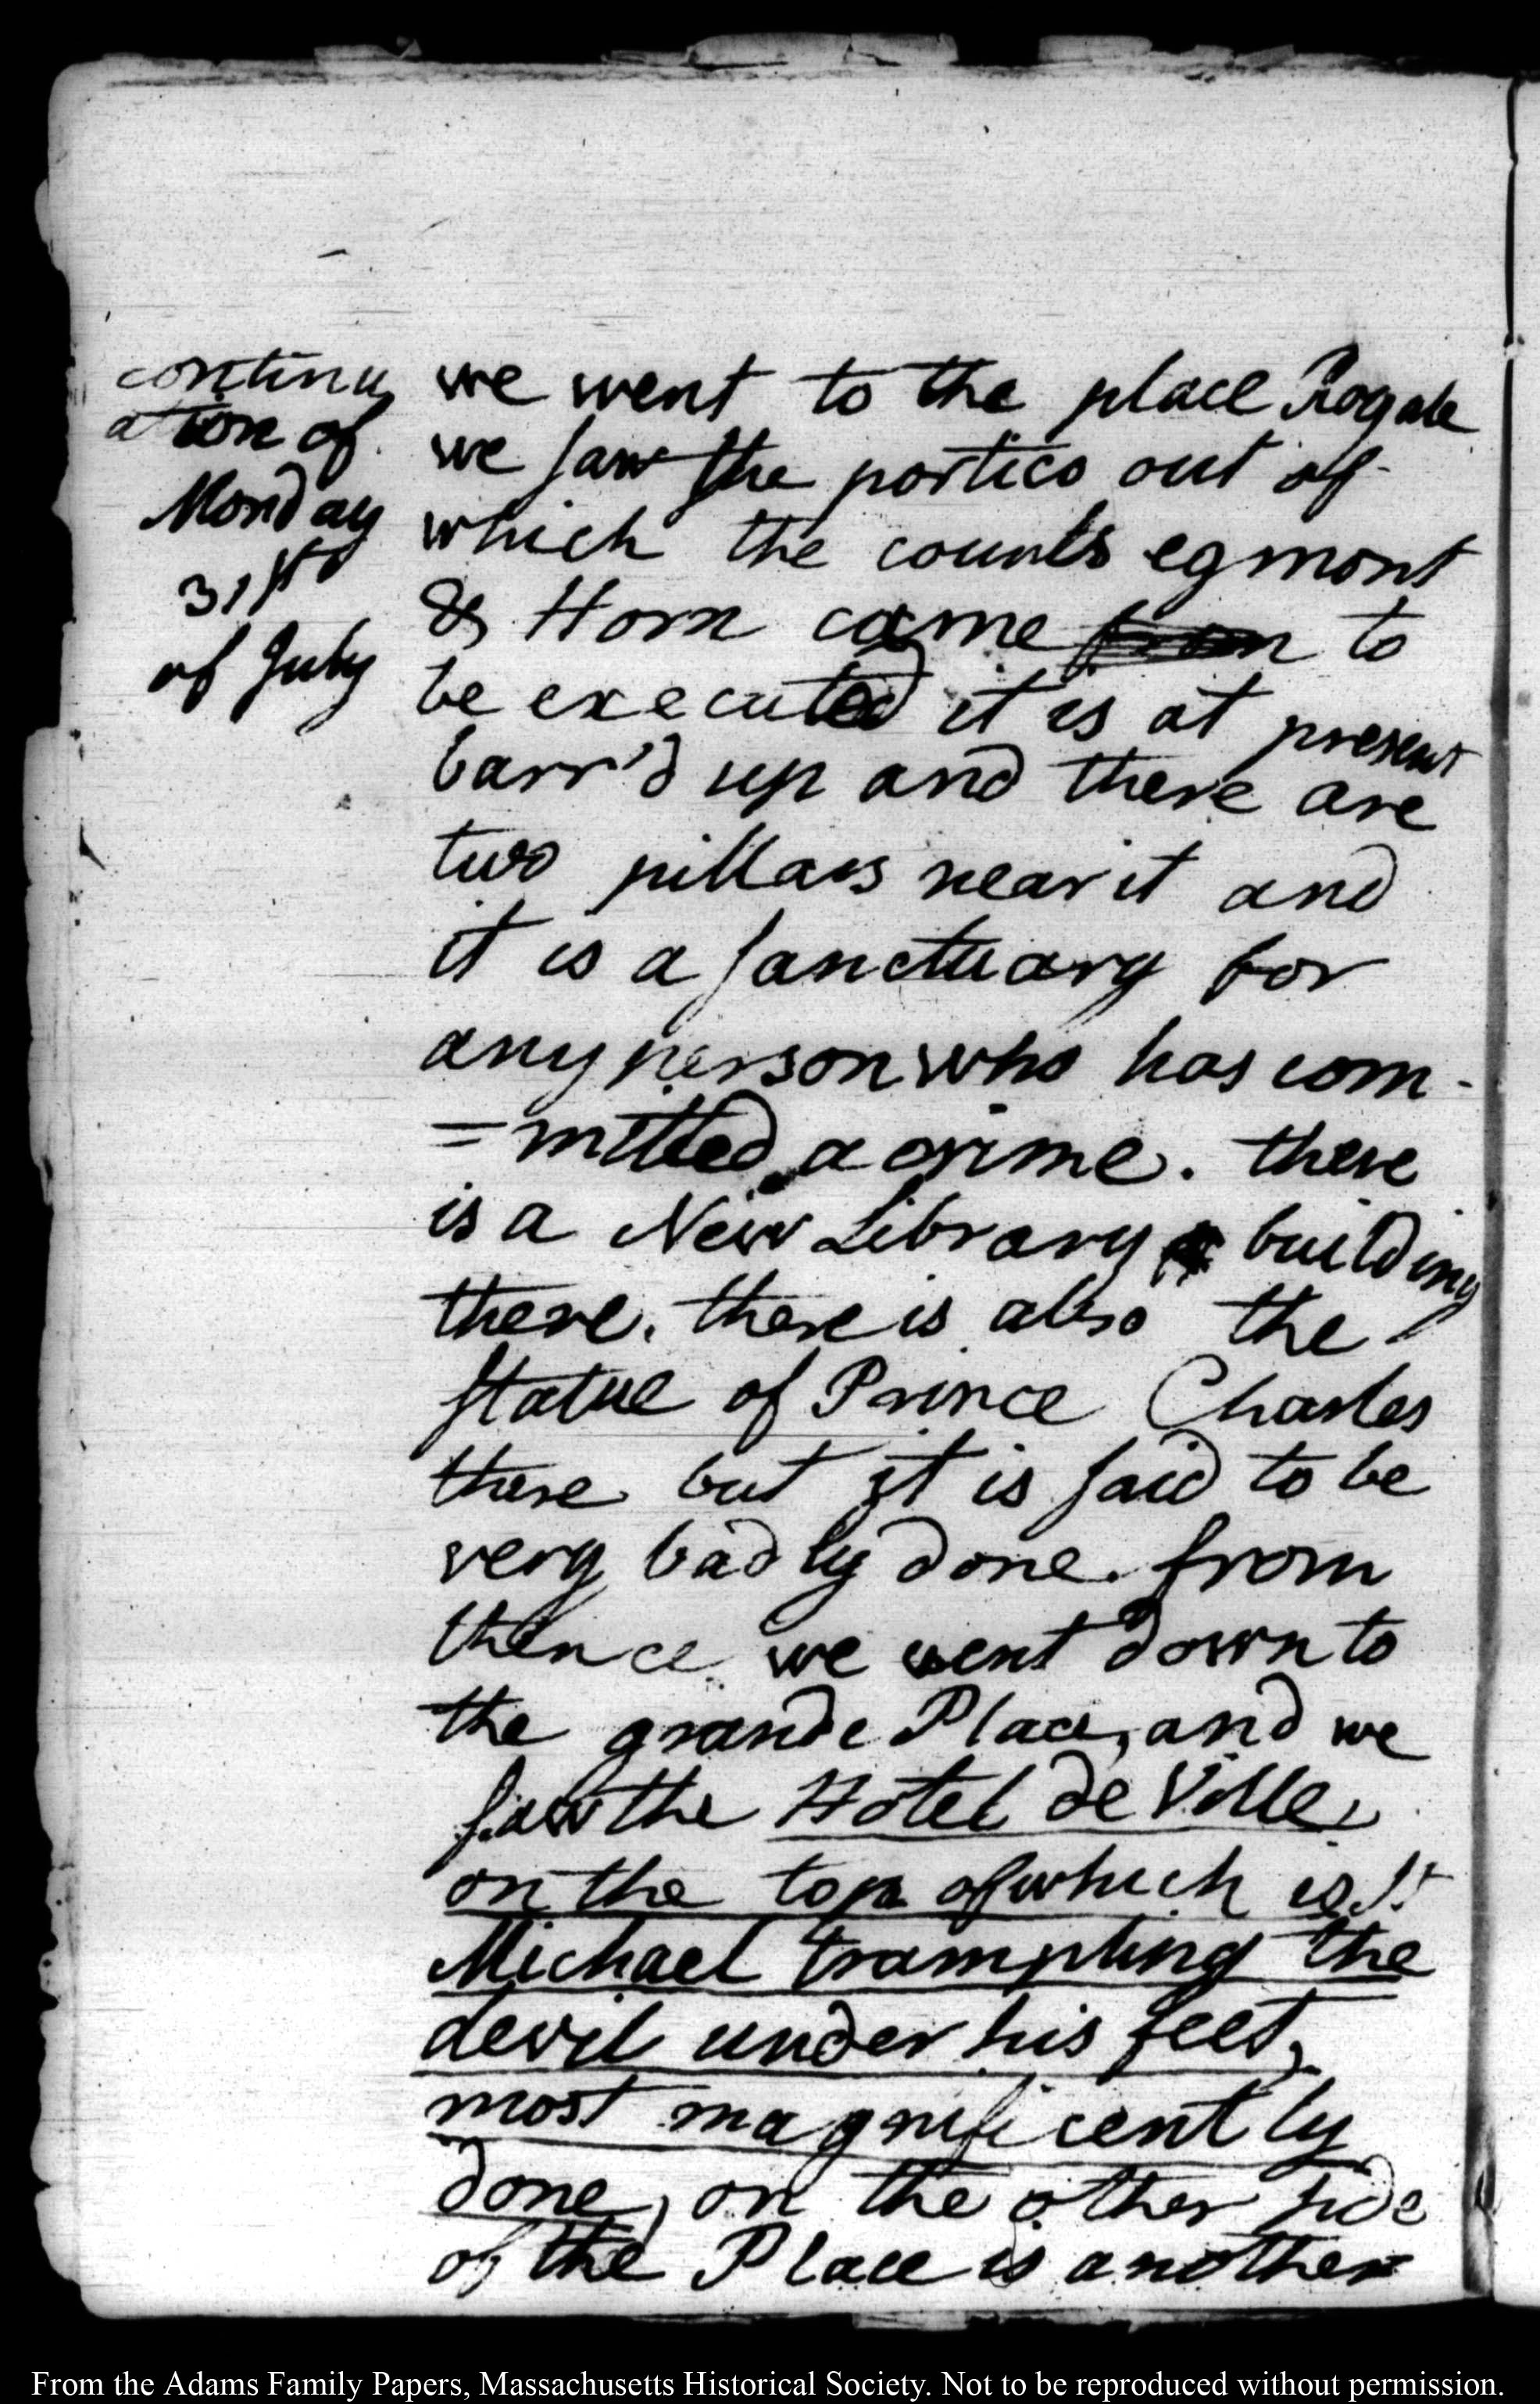 continu
ation of
Monday
31st
of July
we went to the place Rogale
we saw the portico out of
which the counts egmont
& Horn came from to
be executed it is at present
barr'd up and there are
two pillars near it and
it is a sanctuary for
any person who has com-
=mitted a crime. there
is a New Library building
there. there is also the
statue of Prince Charles
there but it is said to be
very badly done. from
thence we went down to
the grande Place, and we
saw the Hotel de Ville,
on the top of which is St
Michael trampling the
devil under his feet,
most magnificently
done, on the other side
of the Place is another
From the Adams Family Papers, Massachusetts Historical Society. Not to be reproduced without permission.